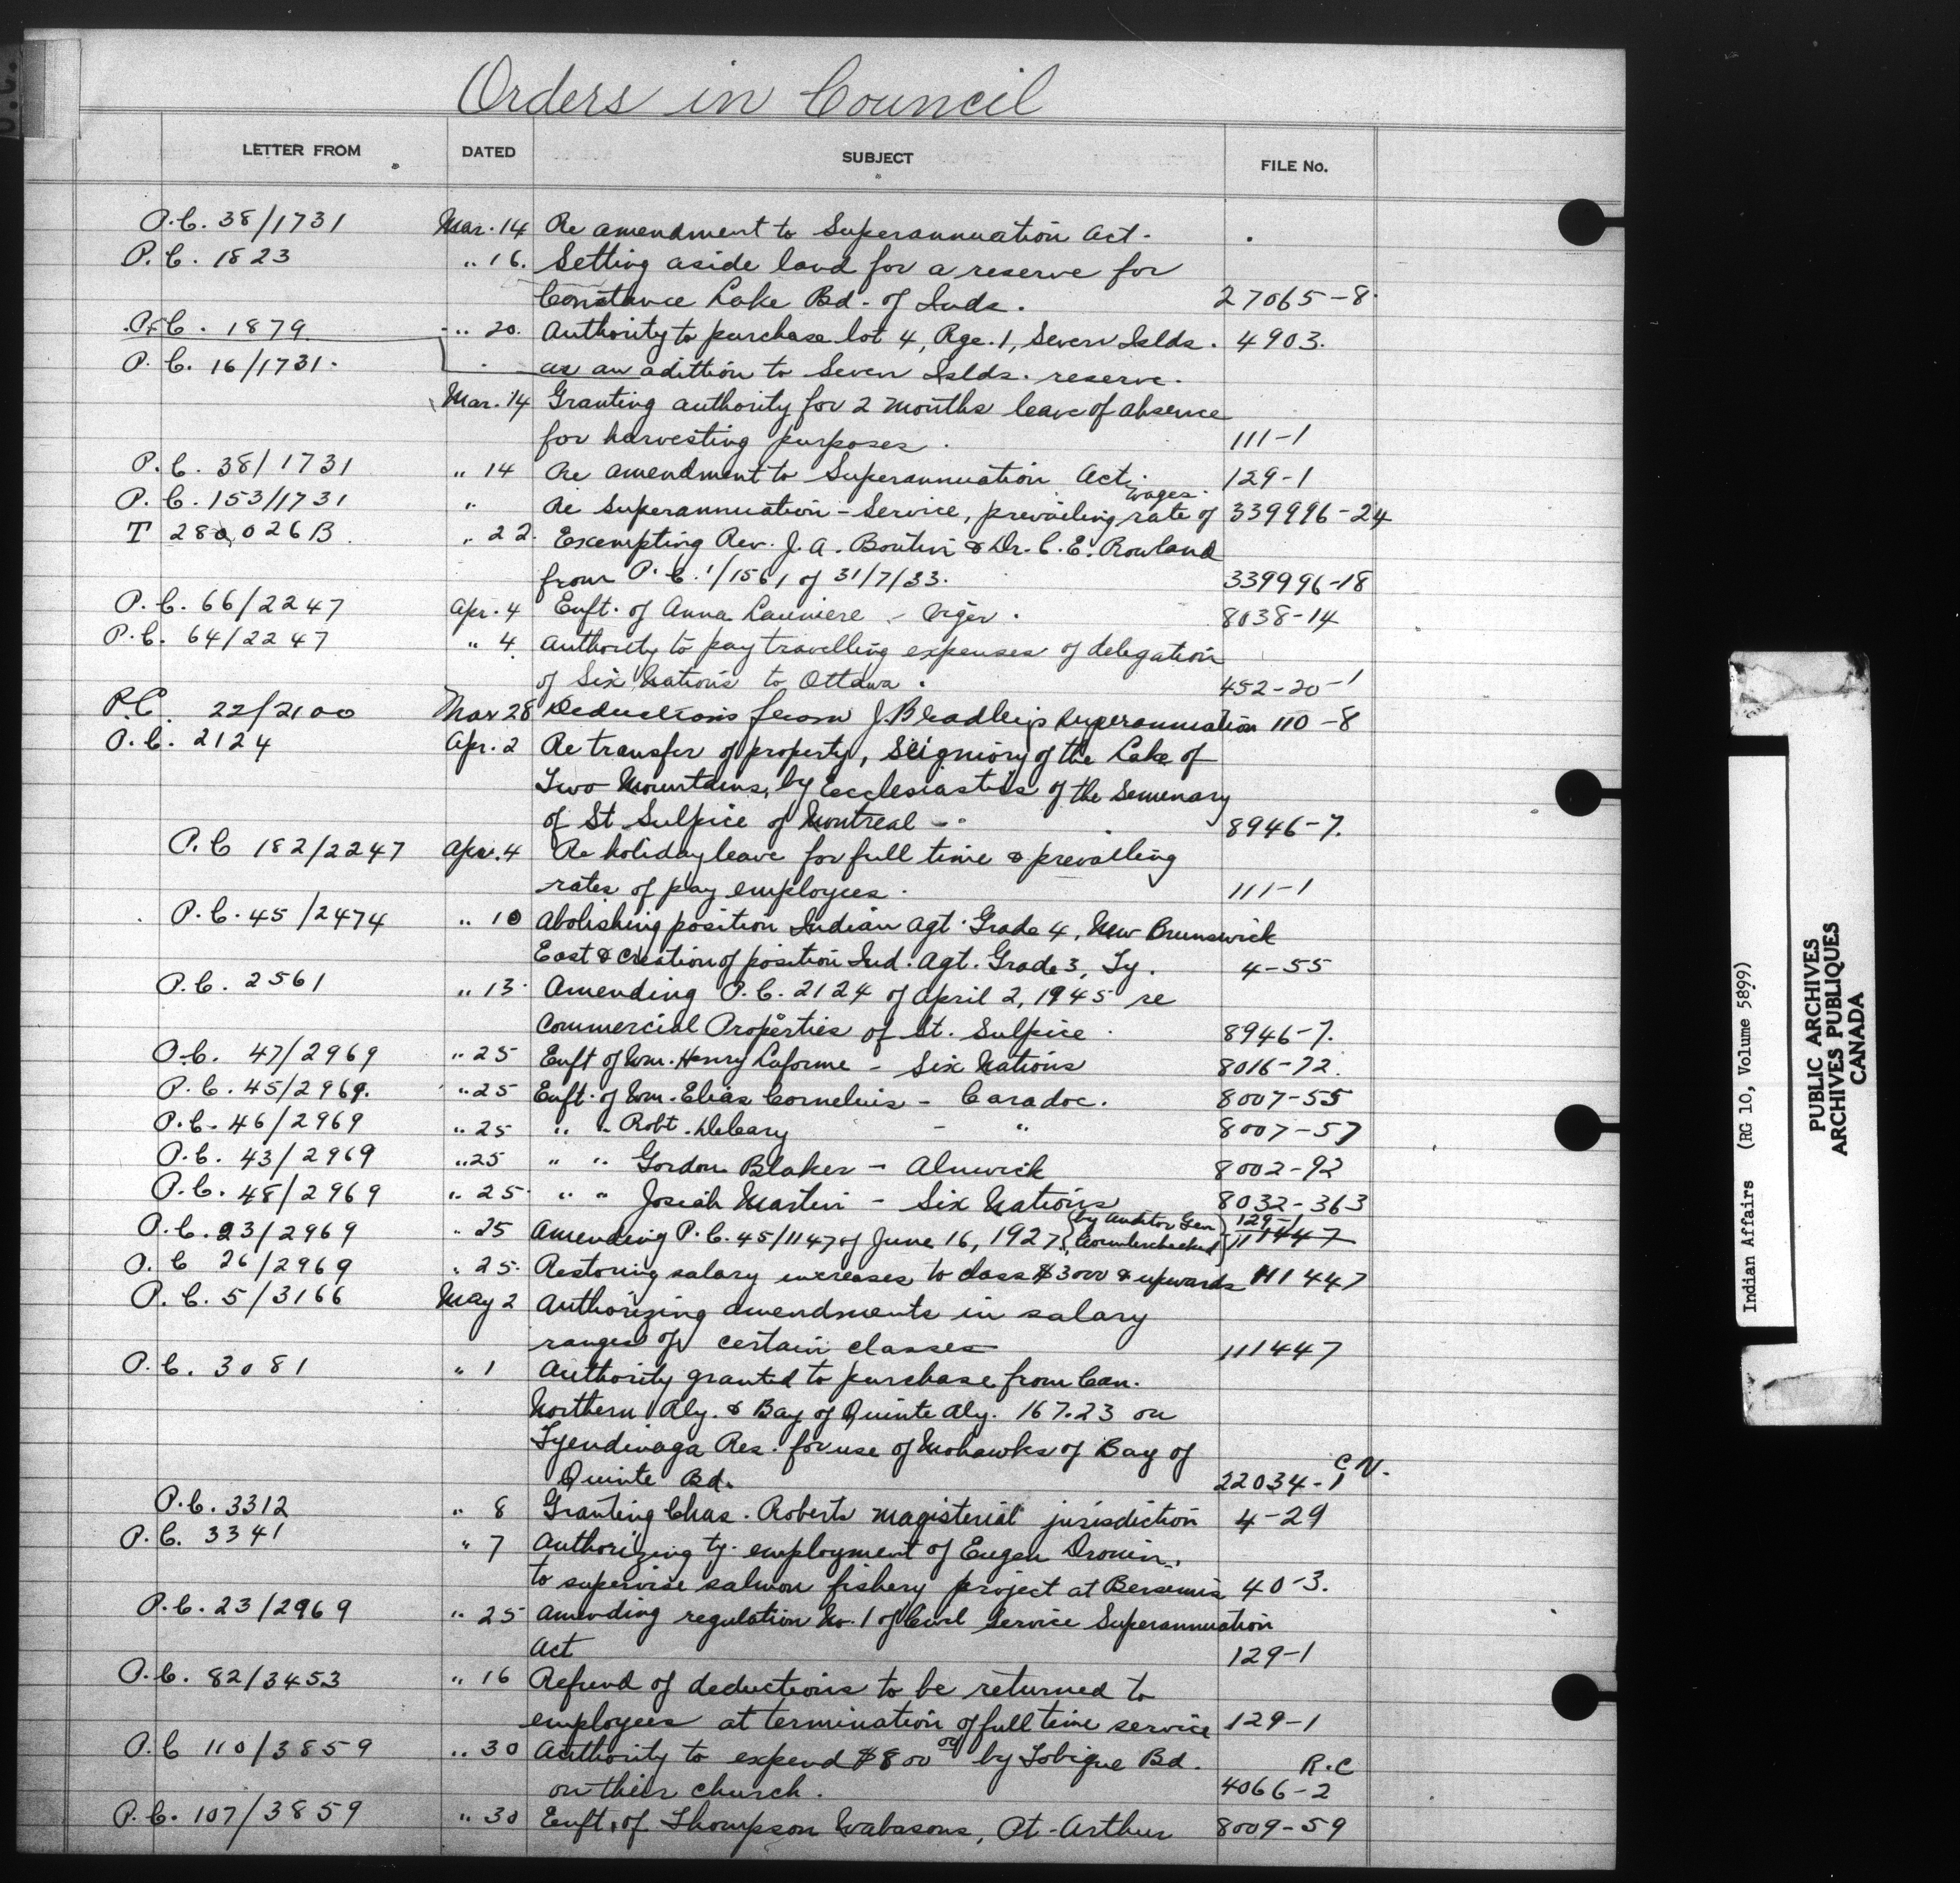 Orders in Council
LETTER FROM DATED SUBJECT FILE No.
P.C. 38/1731 Mar. 14 Re amendment to Superannuation Act.
P.C. 1823 " 16. Setting aside land for a reserve for
Constance Lake Bd. of Inds. 27065-8
P.C. 1879 " 20. Authority to purchase lot 4, Rge. 1, Seven Islds. 4903.
P.C. 16/1731. as an adittion to Seven Islds. reserve.
Mar. 14 Granting authority for 2 months leave of absence
for harvesting purposes. 111-1
P.C. 38/1731 " 14 Re amendment to Superannuation Act. 129-1
wages.
P.C. 153/1731 " Re Superannuation - Service, prevailing rate of 339996-24
T 280,026B " 22. Exempting Rev. J. A. Boutin & Dr. C. E. Rowland
from P.C. 1/1561 of 31/7/33. 339996-18
P.C. 66/2247 Apr. 4 Enft. of Anna Launiere - Viger. 8038-14
P.C. 64/2247 " 4 Authority to pay travelling expenses of delegation
of Six Nations to Ottawa. 452-20-1
P.C. 22/2100 Mar 28 Deductions from J. Bradley's Superannuation 110-8
P.C. 2124 Apr. 2 Re transfer of property, Seigniory of the Lake of
Two Mountains, by Ecclesiastics of the Semenary
of St Sulpice of Montreal - 8946-7.
P.C 182/2247 Apr. 4 Re holiday leave for full time & prevailing
rates of pay employees. 111-1
P.C. 45/2474 " 10 Abolishing position Indian Agt. Grade 4, New Brunswick
East & creation of position Ind. Agt. Grade 3, Ty. 4-55
P.C. 2561 " 13. Amending P.C. 2124 of April 2, 1945 re
Commercial Properties of St. Sulpice. 8946-7.
P.C. 47/2969 " 25 Enft of Wm. Henry Laforme - Six Nations 8016-72.
P.C. 45/2969. " 25 Enft. of Wm. Elias Cornelius - Caradoc. 8007-55
P.C. 46/2969 " 25 " " Robt. Deleary - " 8007-57
P.C. 43/2969 " 25 " " Gordon Blaker - Alnwick 8002-92
P.C. 48/2969 " 25. " " Josiah Martin - Six Nations 8032-363
by Auditor Gen 129-1
P.C. 23/2969 " 25 Amending P.C. 45/1147 of June 16, 1927, Counterchecked 111447
P.C 26/2969 " 25. Restoring salary increases to class $3000 & upwards 111447
P.C. 5/3166 May 2 Authorizing amendments in salary
ranges of certain classes 111447
P.C. 3081 " 1 Authority granted to purchase from Can.
Northern Rly. & Bay of Quinte Rly. 167.23 on
Tyendinaga Res. for use of Mohawks of Bay of
C.N.
Quinte Bd. 22034-1
P.C. 3312 " 8 Granting Chas. Roberts magisterial jurisdiction 4-29
P.C. 3341 " 7 Authorizing ty. employment of Eugen Drouin,
to supervise salmon fishery project at Bersimis 40-3.
P.C. 23/2969 " 25 Amending regulation No. 1 of Civil Service Superannuation
Act 129-1
P.C. 82/3453 " 16 Refund of deductions to be returned to
employees at termination of full time service 129-1
P.C 110/3859 " 30 Authority to expend $800 00 by Tobique Bd. R.C
on their church. 4066-2
P.C. 107/3859 " 30 Enft. of Thompson Wabasons, Pt. Arthur 8009-59
Indian Affairs (RG 10, Volume 5899)
PUBLIC ARCHIVES
ARCHIVES PUBLIQUES
CANADA